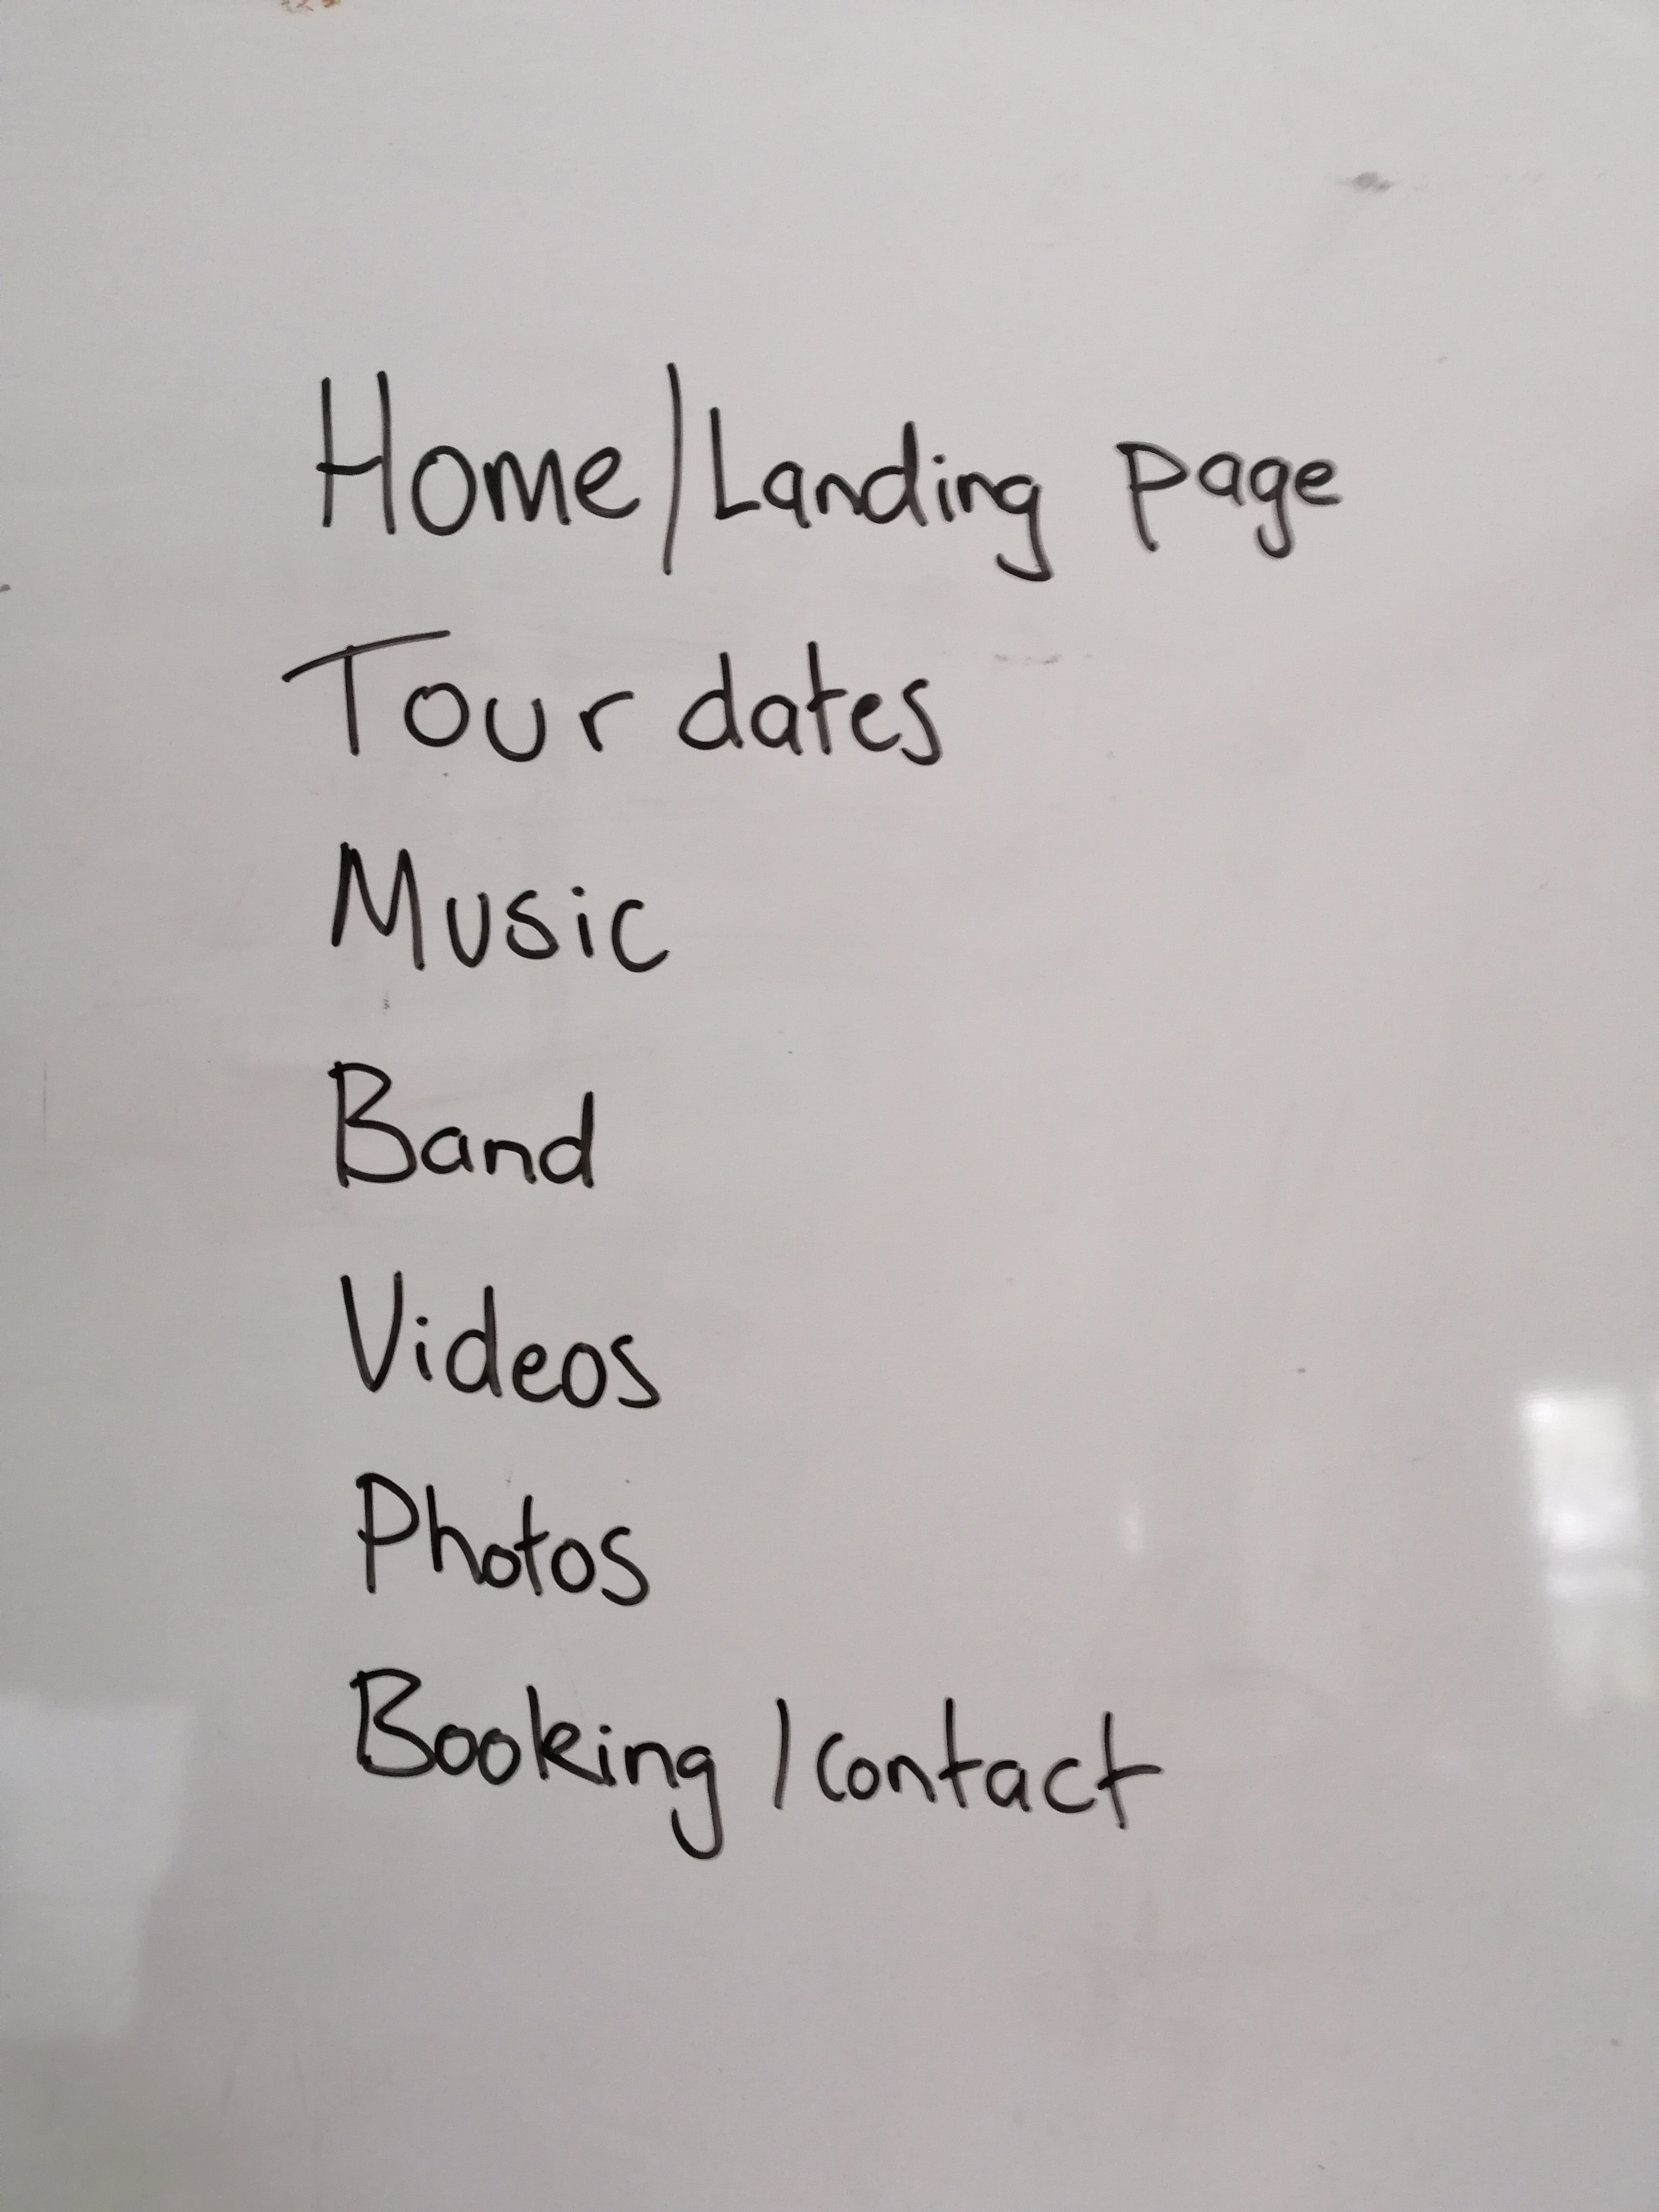 Home/Landing page
Tour dates
Music
Band
Videos
Photos
Booking /contact